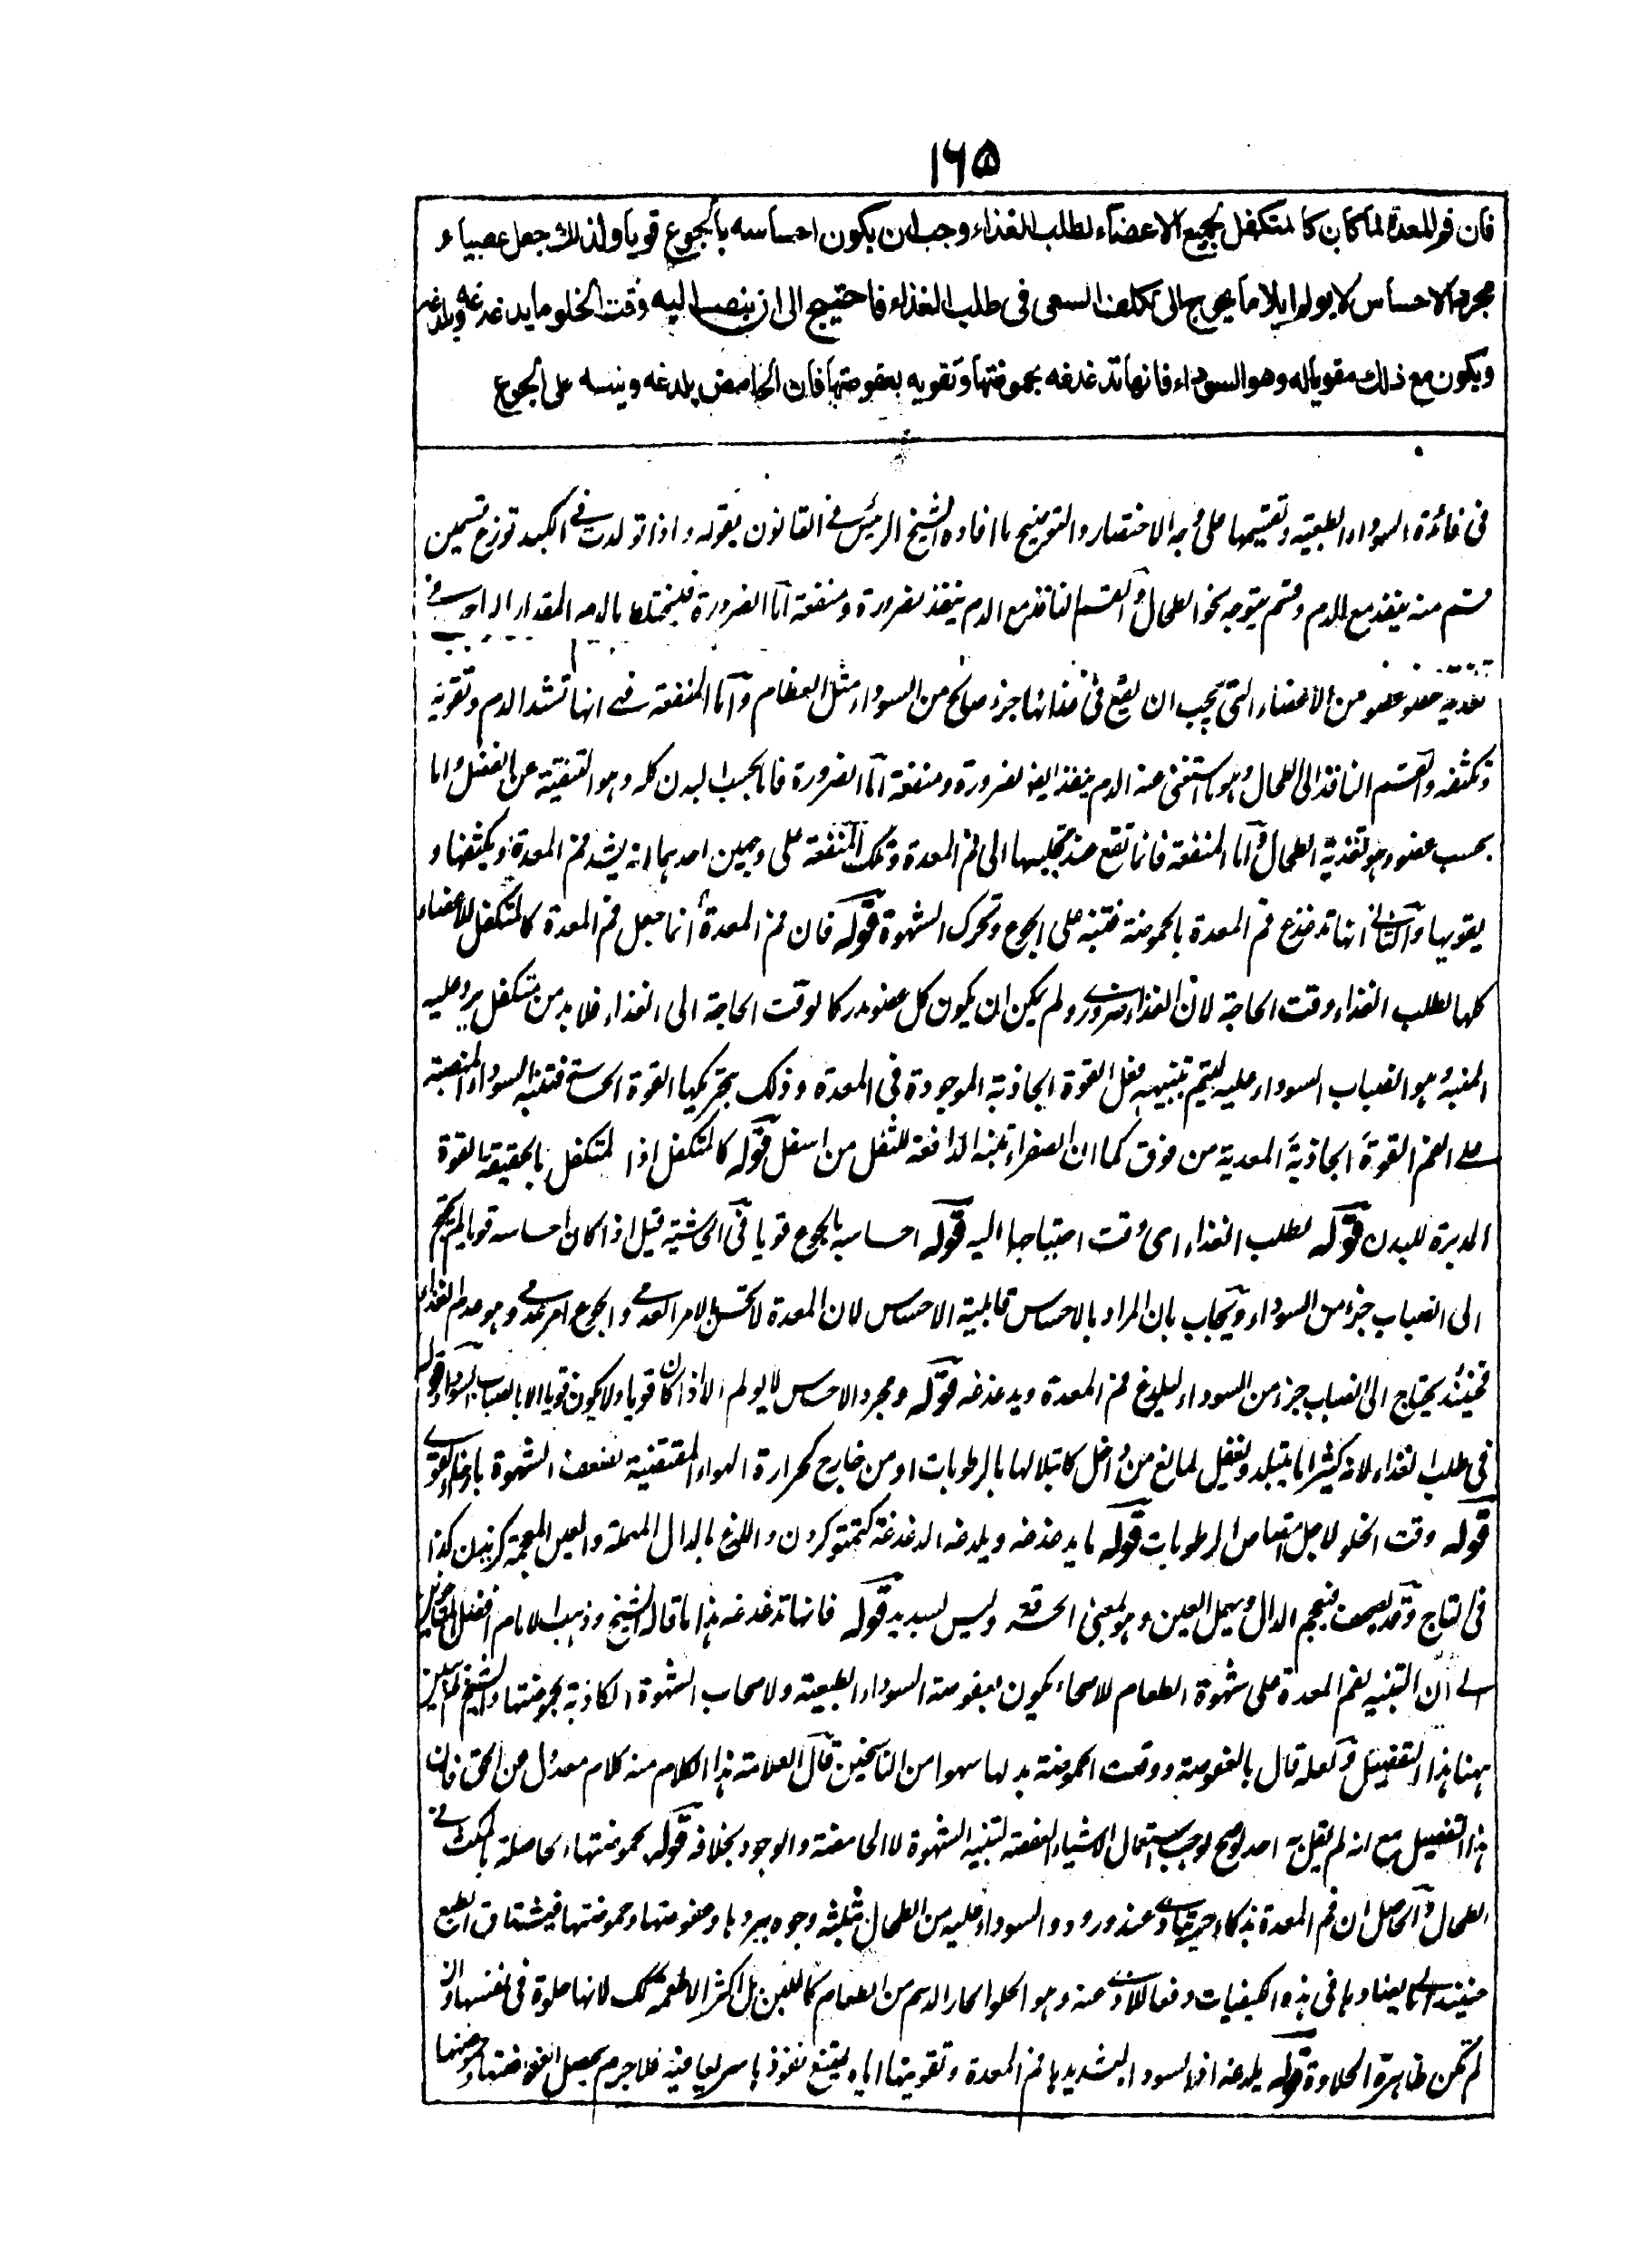 ١٦٥
فان فم المعدة لما كان كالمتكفل بجميع الاعضاء لطلب الغذاء وجب ان يكون احساسه بالجوع قويا ولذلك جعل عصبيا و
مجرد الاحساس لا يولم ايلاما يحوج الى تكلف السعى فى طلب الغذاء فاحتيج الى ان ينصب اليه وقت الخلو ما يدغدغه ويلدغه
ويكون مع ذلك مقويا له وهو السوداء فانها تدغدغه بحموضتها وتقويه بعفوصتها فان الحامض يلدغه وينبه على الجوع
فى فائدة السوداء الطبعية وتقسيمها على وجه الاختصار والتوضيح ما افاده الشيخ الرئيس فى القانون بقوله واذا تولدت فى الكبد توزع قسمين
قسم منه ينفذ مع الدم وقسم يتوجه نحو الطحال والقسم النافذ مع الدم ينفذ لضرورة ومنفعة اما الضرورة فليختلط بالدم المقدار الواجب فى
تغذية عضو عضو من الاعضاء التى يجب ان يقع فى غذائها جزء صالح من السوداء مثل العظام واما المنفعة فهى انها تشد الدم وتقويه
وتكثفه والقسم النافذ الى الطحال وهو ما استغنى عنه الدم ينفذ ايضا لضرورة ومنفعة اما الضرورة فاما بحسب البدن كله وهو التنقية عن الفضل واما
بحسب عضو وهو تغذية الطحال واما المنفعة فانما تقع عند تحلبها الى فم المعدة وتلك المنفعة على وجهين احدهما انه يشد فم المعدة ويكثفها و
يقويها والثانى انها تدغدغ فم المعدة بالحموضة فتنبه على الجوع وتحرك الشهوة قوله فان فم المعدة انما جعل فم المعدة كالمتكفل للاعضاء
كلها لطلب الغذاء وقت الحاجة لان الغذاء ضرورى ولم يكن ان يكون كل عضو مدركا لوقت الحاجة الى الغذاء فلا بد من متكفل يرد عليه
المنبه وهو انصباب السوداء عليه ليتم بتنبيهه فعل القوة الجاذبة الموجودة فى المعدة وذلك بتحريكها القوة الحسية فتنبه السوداء المنصبة
على الفم القوة الجاذبة المعدية من فوق كما ان الصفراء تنبه الدافعة للثفل من اسفل قوله كالمتكفل اذ المتكفل بالحقيقة القوة
المدبرة للبدن قوله لطلب الغذاء اى وقت احتياجها اليه قوله احساسه بالجوع قويا فى الحاشية قيل اذا كان احساسه قويا لم يحتج
الى انصباب جزء من السوداء ويجاب بان المراد بالاحساس قابلية الاحساس لان المعدة لا تحس بالامر العدمى والجوع امر عدمى وهو عدم الغذاء
فحينئذ يحتاج الى انصباب جزء من السوداء ليلدغ فم المعدة ويدغدغه قوله ومجرد الاحساس لا يولم الا اذا كان قويا ولا يكون قويا الا بانصباب السوداء قوله
فى طلب الغذاء لانه كثيرا ما يتبلد ويغفل لمانع من داخل كابتلالها بالرطوبات او من خارج كحرارة الهواء المقتضية لضعف الشهوة بارخاء القوى
قوله وقت الخلو لاجل امتصاص الرطوبات قوله ما يدغدغه ويلدغه الدغدغة كتمتو كردن واللدغ بالدال المهملة والغين المعجمة گزيدن كذا
فى التاج وقد يصحف فيعجم الدال ويهمل العين وهو بمعنى الحرقة وليس بسديد قوله فانها تدغدغه هذا ما قاله الشيخ وذهب الامام افضل المتاخرين
الى ان التنبيه لفم المعدة على شهوة الطعام للاصحاء يكون بعفوصة السوداء الطبعية ولاصحاب الشهوة الكاذبة بحموضتها والشيخ لم يبين
ههنا هذا التفصيل ولعله قال بالعفوصة ووقعت الحموضة بدلها سهوا من الناسخين قال العلامة هذا الكلام منه كلام معدول عن الحق فان
هذا التفصيل مع انه لم يقل به احد لو صح لوجب استعمال الاشياء العفصة لتنبيه الشهوة لا الحامضة والوجود بخلافه قوله بحموضتها الحاصلة بالمكث فى
الطحال والحاصل ان فم المعدة بذكاء حسه يتاذى عند ورود السوداء عليه من الطحال بثلثة وجوه ببردها وعفوصتها وحموضتها فيشتاق الطبع
حينئذ الى ما يضادها فى هذه الكيفيات دفعا للاذى عنه وهو الحلو الحار الدسم من الطعام كاللبن بل اكثر الاطعمة كك لانها حلوة فى نفسها وان
لم تكن ظاهرة الحلاوة قوله يلدغه اذ السوداء لتشديدها فم المعدة وتقويتها اياه يمتنع نفوذها سريعا فيه فلا جرم يحصل الغرض بعفوصتها وحموضتها